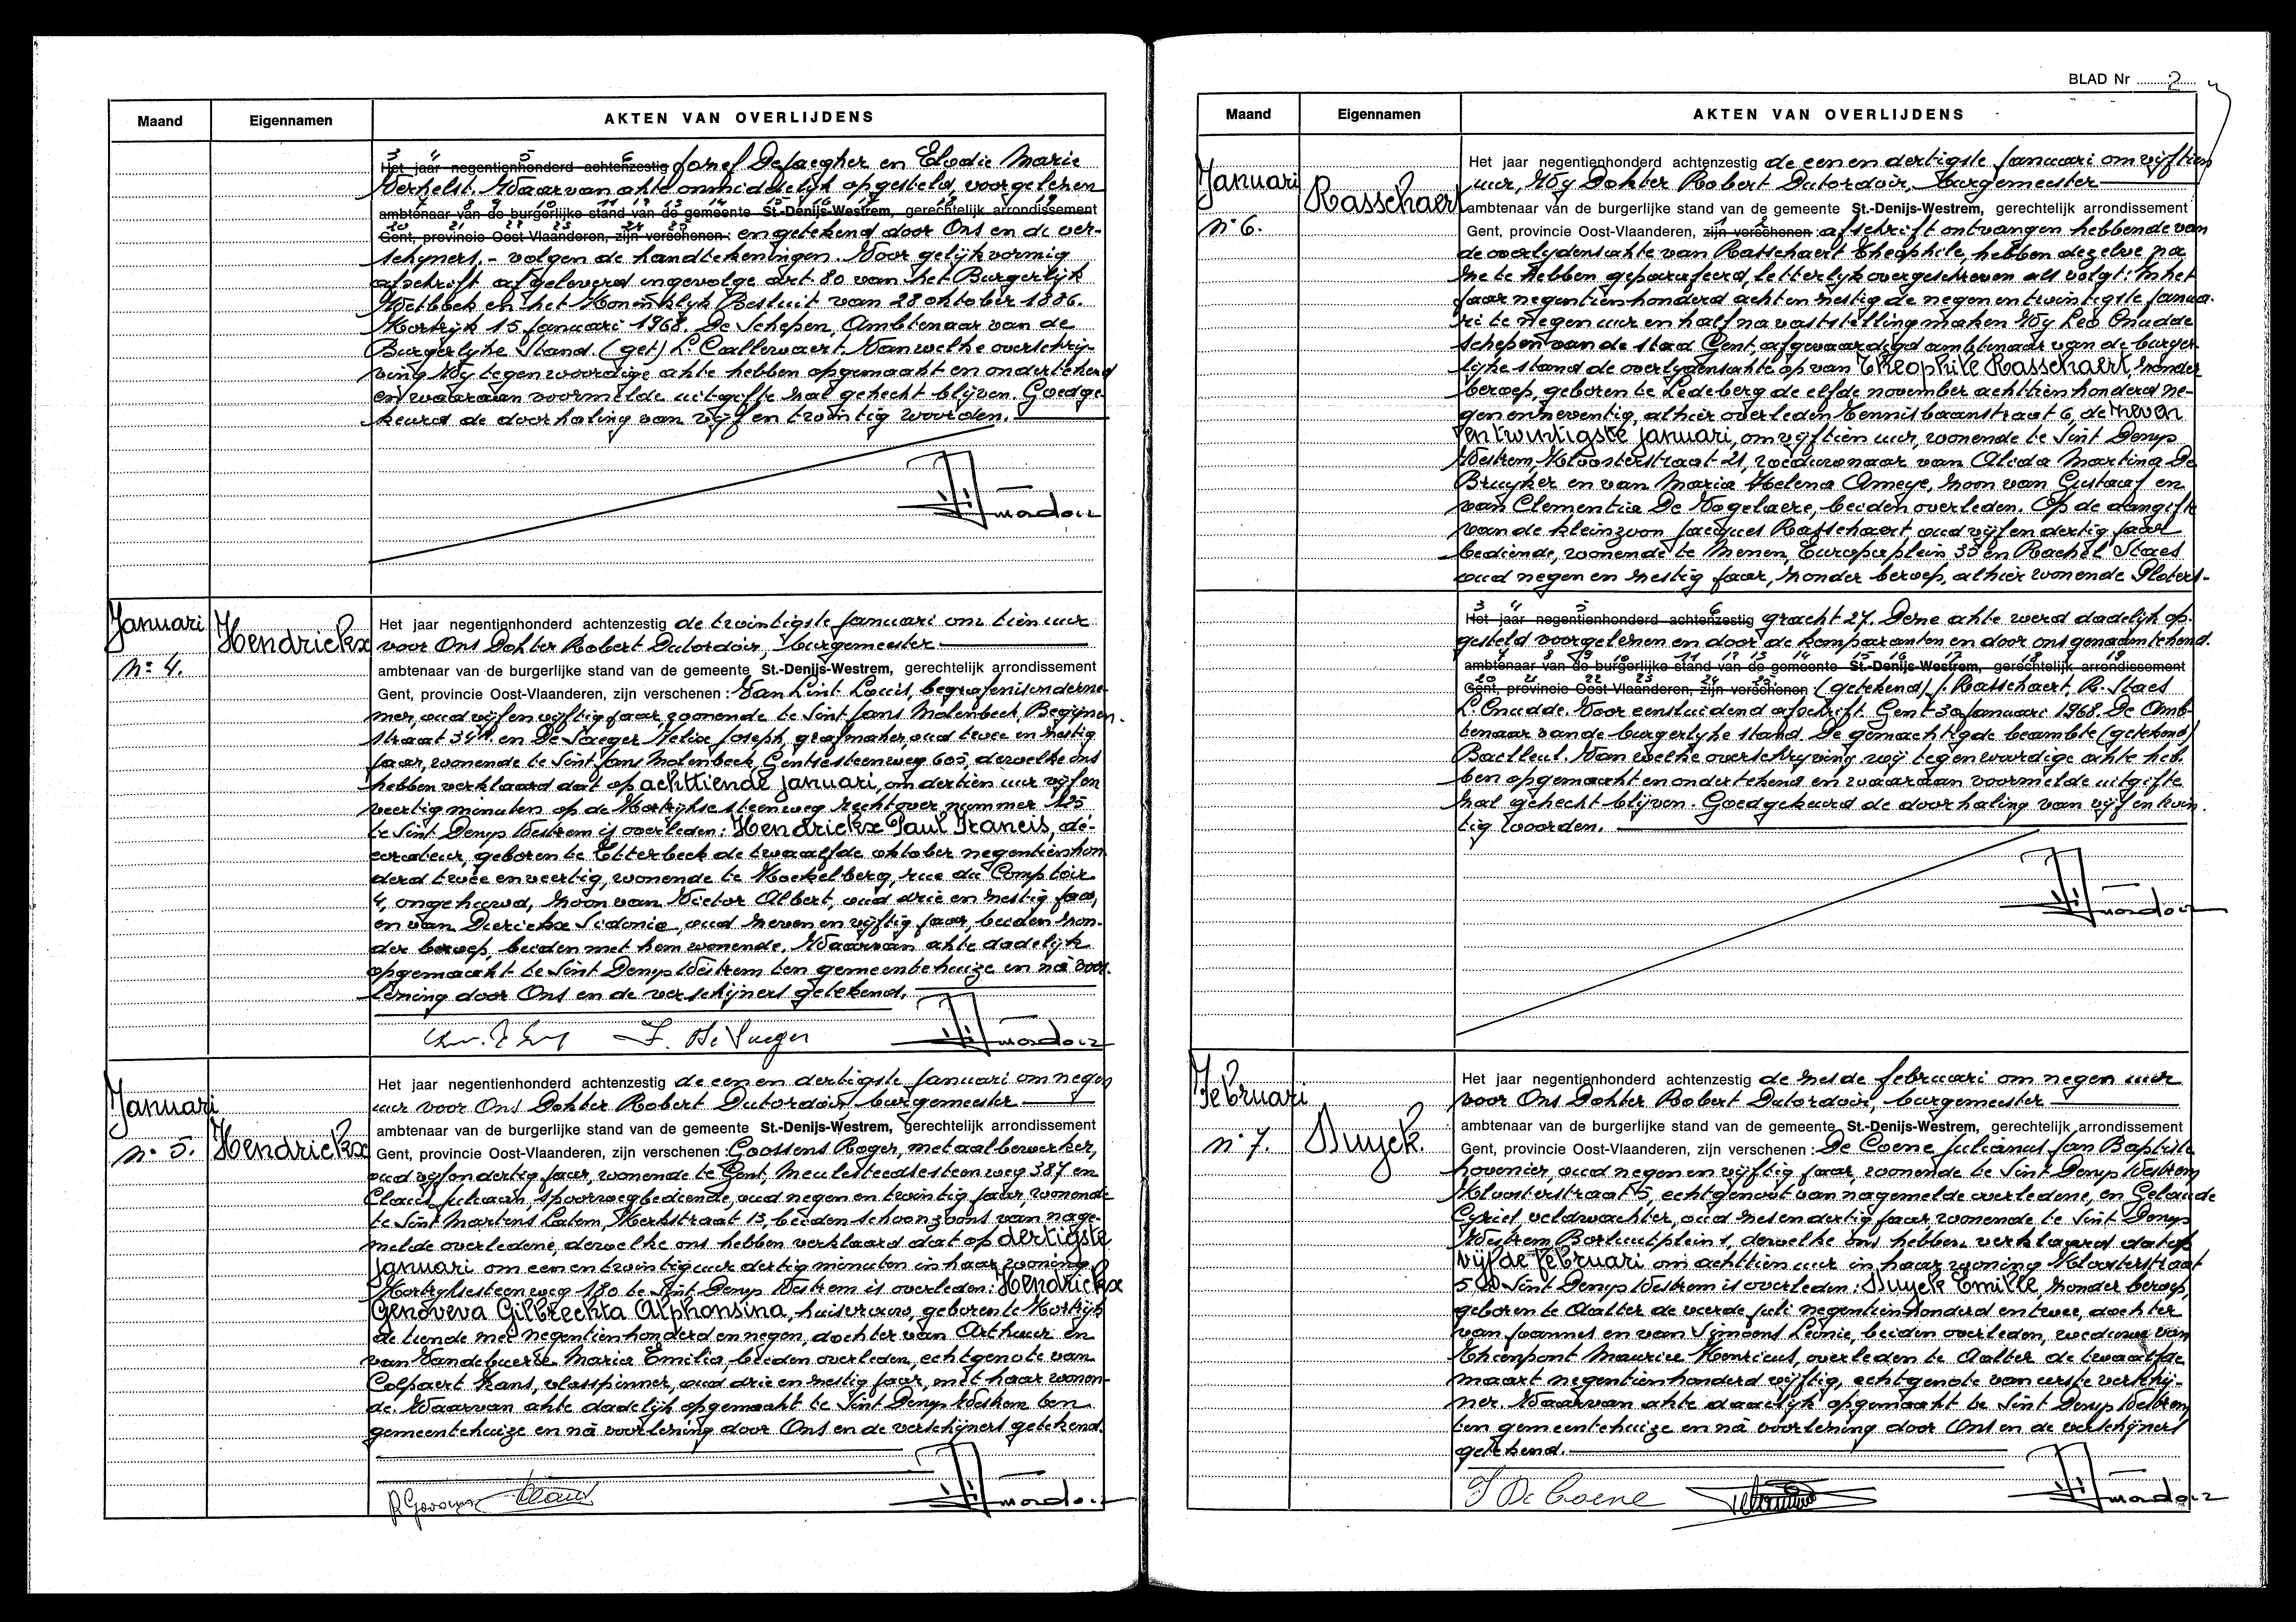 Maand Eigennamen AKTEN VAN OVERLIJDENS
3 4 5 6
Het jaar negentienhonderd achtenzestig Jozef Defaegher en Elodie Marie
Verhelst. Waarvan akte onmiddelijk opgesteld, voorgelezen
7 8 9 10 11 12 13 14 15 16 17 18 19
ambtenaar van de burgerlijke stand van de gemeente St.-Denijs-Westrem, gerechtelijk arrondissement
20 21 22 23 24 25
Gent, provincie Oost-Vlaanderen, zijn verschenen: en getekend door Ons en de ver-
schijners. - volgen de handtekeningen. Voor gelijkvormig
afschrift afgeleverd ingevolge art. 80 van het Burgerlijk
Wetboek en het Koninklijk Besluit van 28 oktober 1886.
Kortrijk 15 Januari 1968. De Schepen, Ambtenaar van de
Burgerlyke Stand. (get) L. Callewaert. Van welke overschrij-
ving Wij tegenwoordige akte hebben opgemaakt en ondertekend
en waaraan voormelde uitgifte zal gehecht blijven. Goedge-
keurd de doorhaling van vijf en twintig woorden.
Januari
Hendrickx
n° 4.
Het jaar negentienhonderd achtenzestig de twintigste Januari om tien uur
voor Ons Dokter Robert Dutordoir, burgemeester
ambtenaar van de burgerlijke stand van de gemeente St.-Denijs-Westrem, gerechtelijk arrondissement
Gent, provincie Oost-Vlaanderen, zijn verschenen: Van Lint Louis, begrafenisonderne-
mer, oud vijf en vijftig jaar, wonende te Sint Jans Molenbeek, Begijnen-
straat 34 en De Saeger Felix Joseph, grafmaker, oud twee en zestig
jaar, wonende te Sint Jans Molenbeek, Gentsesteenweg 605, dewelke ons
hebben verklaard dat op achttiende januari, om dertien uur vijf en
veertig minuten op de Kortrijkse steenweg rechtover nummer 125
te Sint Denys Westrem is overleden: Hendrickx Paul Francis, dé-
corateur, geboren te Etterbeek de twaalfde oktober negentienhon-
derd twee en veertig, wonende te Koekelberg, rue du Comptoir
4, ongehuwd, zoon van Victor Albert, oud drie en zestig jaar,
en van Dierickx Sidonie, oud zeven en vijftig jaar, beiden zon-
der beroep, beiden met hem wonende. Waarvan akte dadelijk
opgemaakt te Sint Denys Westrem ten gemeentehuize en nà voor-
lezing door Ons en de verschijners getekend.
F. De Saeger
Januari
n° 5. Hendrickx
Het jaar negentienhonderd achtenzestig de een en dertigste Januari om negen
uur voor Ons Dokter Robert Dutordoir, burgemeester
ambtenaar van de burgerlijke stand van de gemeente St.-Denijs-Westrem, gerechtelijk arrondissement
Gent, provincie Oost-Vlaanderen, zijn verschenen: Goossens Roger, metaalbewerker,
oud vijf en dertig jaar, wonende te Gent, Meulesteedsesteenweg 387 en
Claus Juliaan, spoorwegbediende, oud negen en twintig jaar, wonende
te Sint Martens Latem, Kerkstraat 13, beiden schoonzoons van nage-
melde overledene, dewelke ons hebben verklaard dat op dertigste
januari om een en twintig uur dertig minuten in haar woning
Kortrijksesteenweg 180 te Sint Denys Westrem is overleden: Hendrickx
Genoveva Gilbrechta Alphonsina, huisvrouw, geboren te Kortrijk
de tiende mei negentienhonderd en negen, dochter van Arthuur en
van Vandebuerie Maria Emilia, beiden overleden, echtgenote van
Colpaert Hans, vlasspinner, oud drie en zestig jaar, met haar wonen-
de. Waarvan akte dadelijk opgemaakt te Sint Denys Westrem ten
gemeentehuize en nà voorlezing door Ons en de verschijners getekend.
BLAD Nr 2
Maand Eigennamen AKTEN VAN OVERLIJDENS
Januari
Rasschaert
n° 6.
Het jaar negentienhonderd achtenzestig de een en dertigste Januari om vijftien
uur, Wy Dokter Robert Dutordoir, burgemeester
ambtenaar van de burgerlijke stand van de gemeente St.-Denijs-Westrem, gerechtelijk arrondissement
1 2
Gent, provincie Oost-Vlaanderen, zijn verschenen: afschrift ontvangen hebbende van
de overlydensakte van Rasschaert Theophile, hebben dezelve na
ze te hebben geparafeerd, letterlyk overgeschreven als volgt: In het
Jaar negentienhonderd acht en zestig de negen en twintigste Janua-
ri te negen uur en half na vaststelling maken Wy Leo Cnudde
schepen van de stad Gent, afgevaardigd ambtenaar van de burger-
lyke stand de overlydensakte op van Theophile Rasschaert, zonder
beroep, geboren te Ledeberg de elfde november achttienhonderd ne-
gen en zeventig, alhier overleden Tennisbaanstraat 6, de zeven
en twintigste januari, om vyftien uur, wonende te Sint Denys
Westrem, Kloosterstraat 21, weduwnaar van Alida Martina De
Bruyker en van Maria Helena Ameye, zoon van Gustaaf en
van Clementia De Vogelaere, beiden overleden. Op de aangifte
van de kleinzoon Jacques Rasschaert oud vyf en dertig jaar
bediende, wonende te Menen, Europaplein 35 en Rachel Staes
oud negen en zestig jaar, zonder beroep, alhier wonende Sloters-
3 4 5 6
Het jaar negentienhonderd achtenzestig gracht 27. Deze akte werd dadelijk op-
gesteld voorgelezen en door de komparanten en door ons genaamtekend.
7 8 9 10 11 12 13 14 15 16 17 18 19
ambtenaar van de burgerlijke stand van de gemeente St.-Denijs-Westrem, gerechtelijk arrondissement
20 21 22 23 24 25
Gent, provincie Oost-Vlaanderen, zijn verschenen: (getekend) J. Rasschaert, R. Staes
L. Cnudde. Voor eensluidend afschrift. Gent 30 Januari 1968. De Amb-
tenaar van de burgerlyke stand. De gemachtigde beambte (getekend)
Baetleul. Van welke overschryving wij tegenwoordige akte heb-
ben opgemaakt en ondertekend en waaraan voormelde uitgifte
zal gehecht blijven. Goedgekeurd de doorhaling van vijf en twin-
tig woorden.
Februari
n° 7. Buyck.
Het jaar negentienhonderd achtenzestig de zesde februari om negen uur
voor Ons Dokter Robert Dutordoir, burgemeester
ambtenaar van de burgerlijke stand van de gemeente St.-Denijs-Westrem, gerechtelijk arrondissement
Gent, provincie Oost-Vlaanderen, zijn verschenen: De Coene Julianus Jan Baptiste
hovenier, oud negen en vijftig jaar, wonende te Sint Denys Westrem
Kloosterstraat 5, echtgenoot van nagemelde overledene, en Gelaude
Cyriel veldwachter, oud zes en dertig jaar wonende te Sint Denys
Westrem Borluutplein 1, dewelke ons hebben verklaard dat op
vijfde februari om achttien uur in haar woning Kloosterstraat
5 te Sint Denys Westrem is overleden: Buyck Emilie, zonder beroep,
geboren te Aalter de vierde juli negentienhonderd en twee, dochter
van Joannes en van Simoens Leonie, beiden overleden, weduwe van
Thienpont Maurice Henricus, overleden te Aalter de twaalfde
maart negentienhonderd vijftig, echtgenote van eerste verschij-
ner. Waarvan akte dadelijk opgemaakt te Sint Denys Westrem
ten gemeentehuize en nà voorlezing door Ons en de verschijners
getekend.
J De Coene